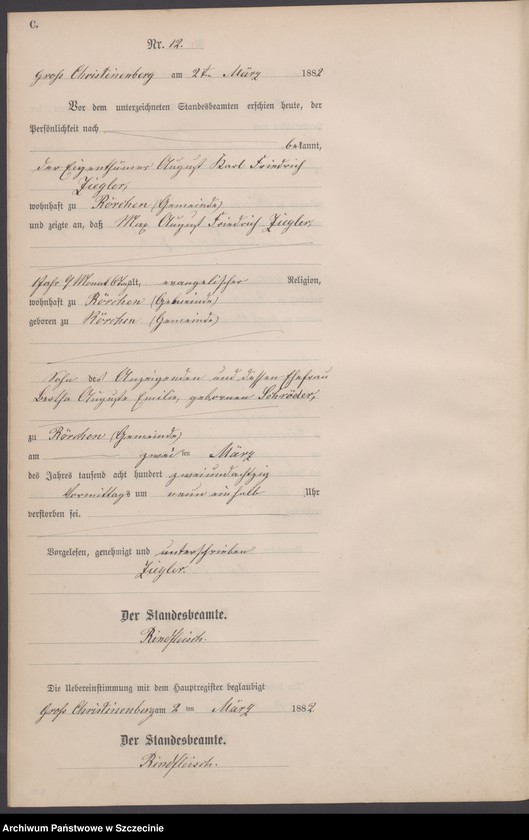 C.
Nr. 12.
Gross Christinenberg am 2ten März 1882
Vor dem unterzeichneten Standesbeamten erschien heute, der
Persönlichkeit nach
bekannt,
der Eigenthümer August Karl Friedrich
Ziegler,
wohnhaft zu Rörchen (Gemeinde)
und zeigte an, daß Max August Friedrich Ziegler,
1 Jahr 9 Monat 6 Tage alt, evangelischer Religion,
wohnhaft zu Rörchen (Gemeinde)
geboren zu Rörchen (Gemeinde)
Sohn des Anzeigenden und dessen Ehefrau
Bertha Auguste Emilie, gebornen Schröder,
zu Rörchen (Gemeinde)
am zwei ten März
des Jahres tausend acht hundert zweiundachtzig
Vormittags um neun einhalb Uhr
verstorben sei.
Vorgelesen, genehmigt und unterschrieben
Ziegler.
Der Standesbeamte.
Rindfleisch.
Die Uebereinstimmung mit dem Hauptregister beglaubigt
Gross Christinenberg am 2 ten März 1882
Der Standesbeamte.
Rindfleisch.
Archiwum Państwowe w Szczecinie